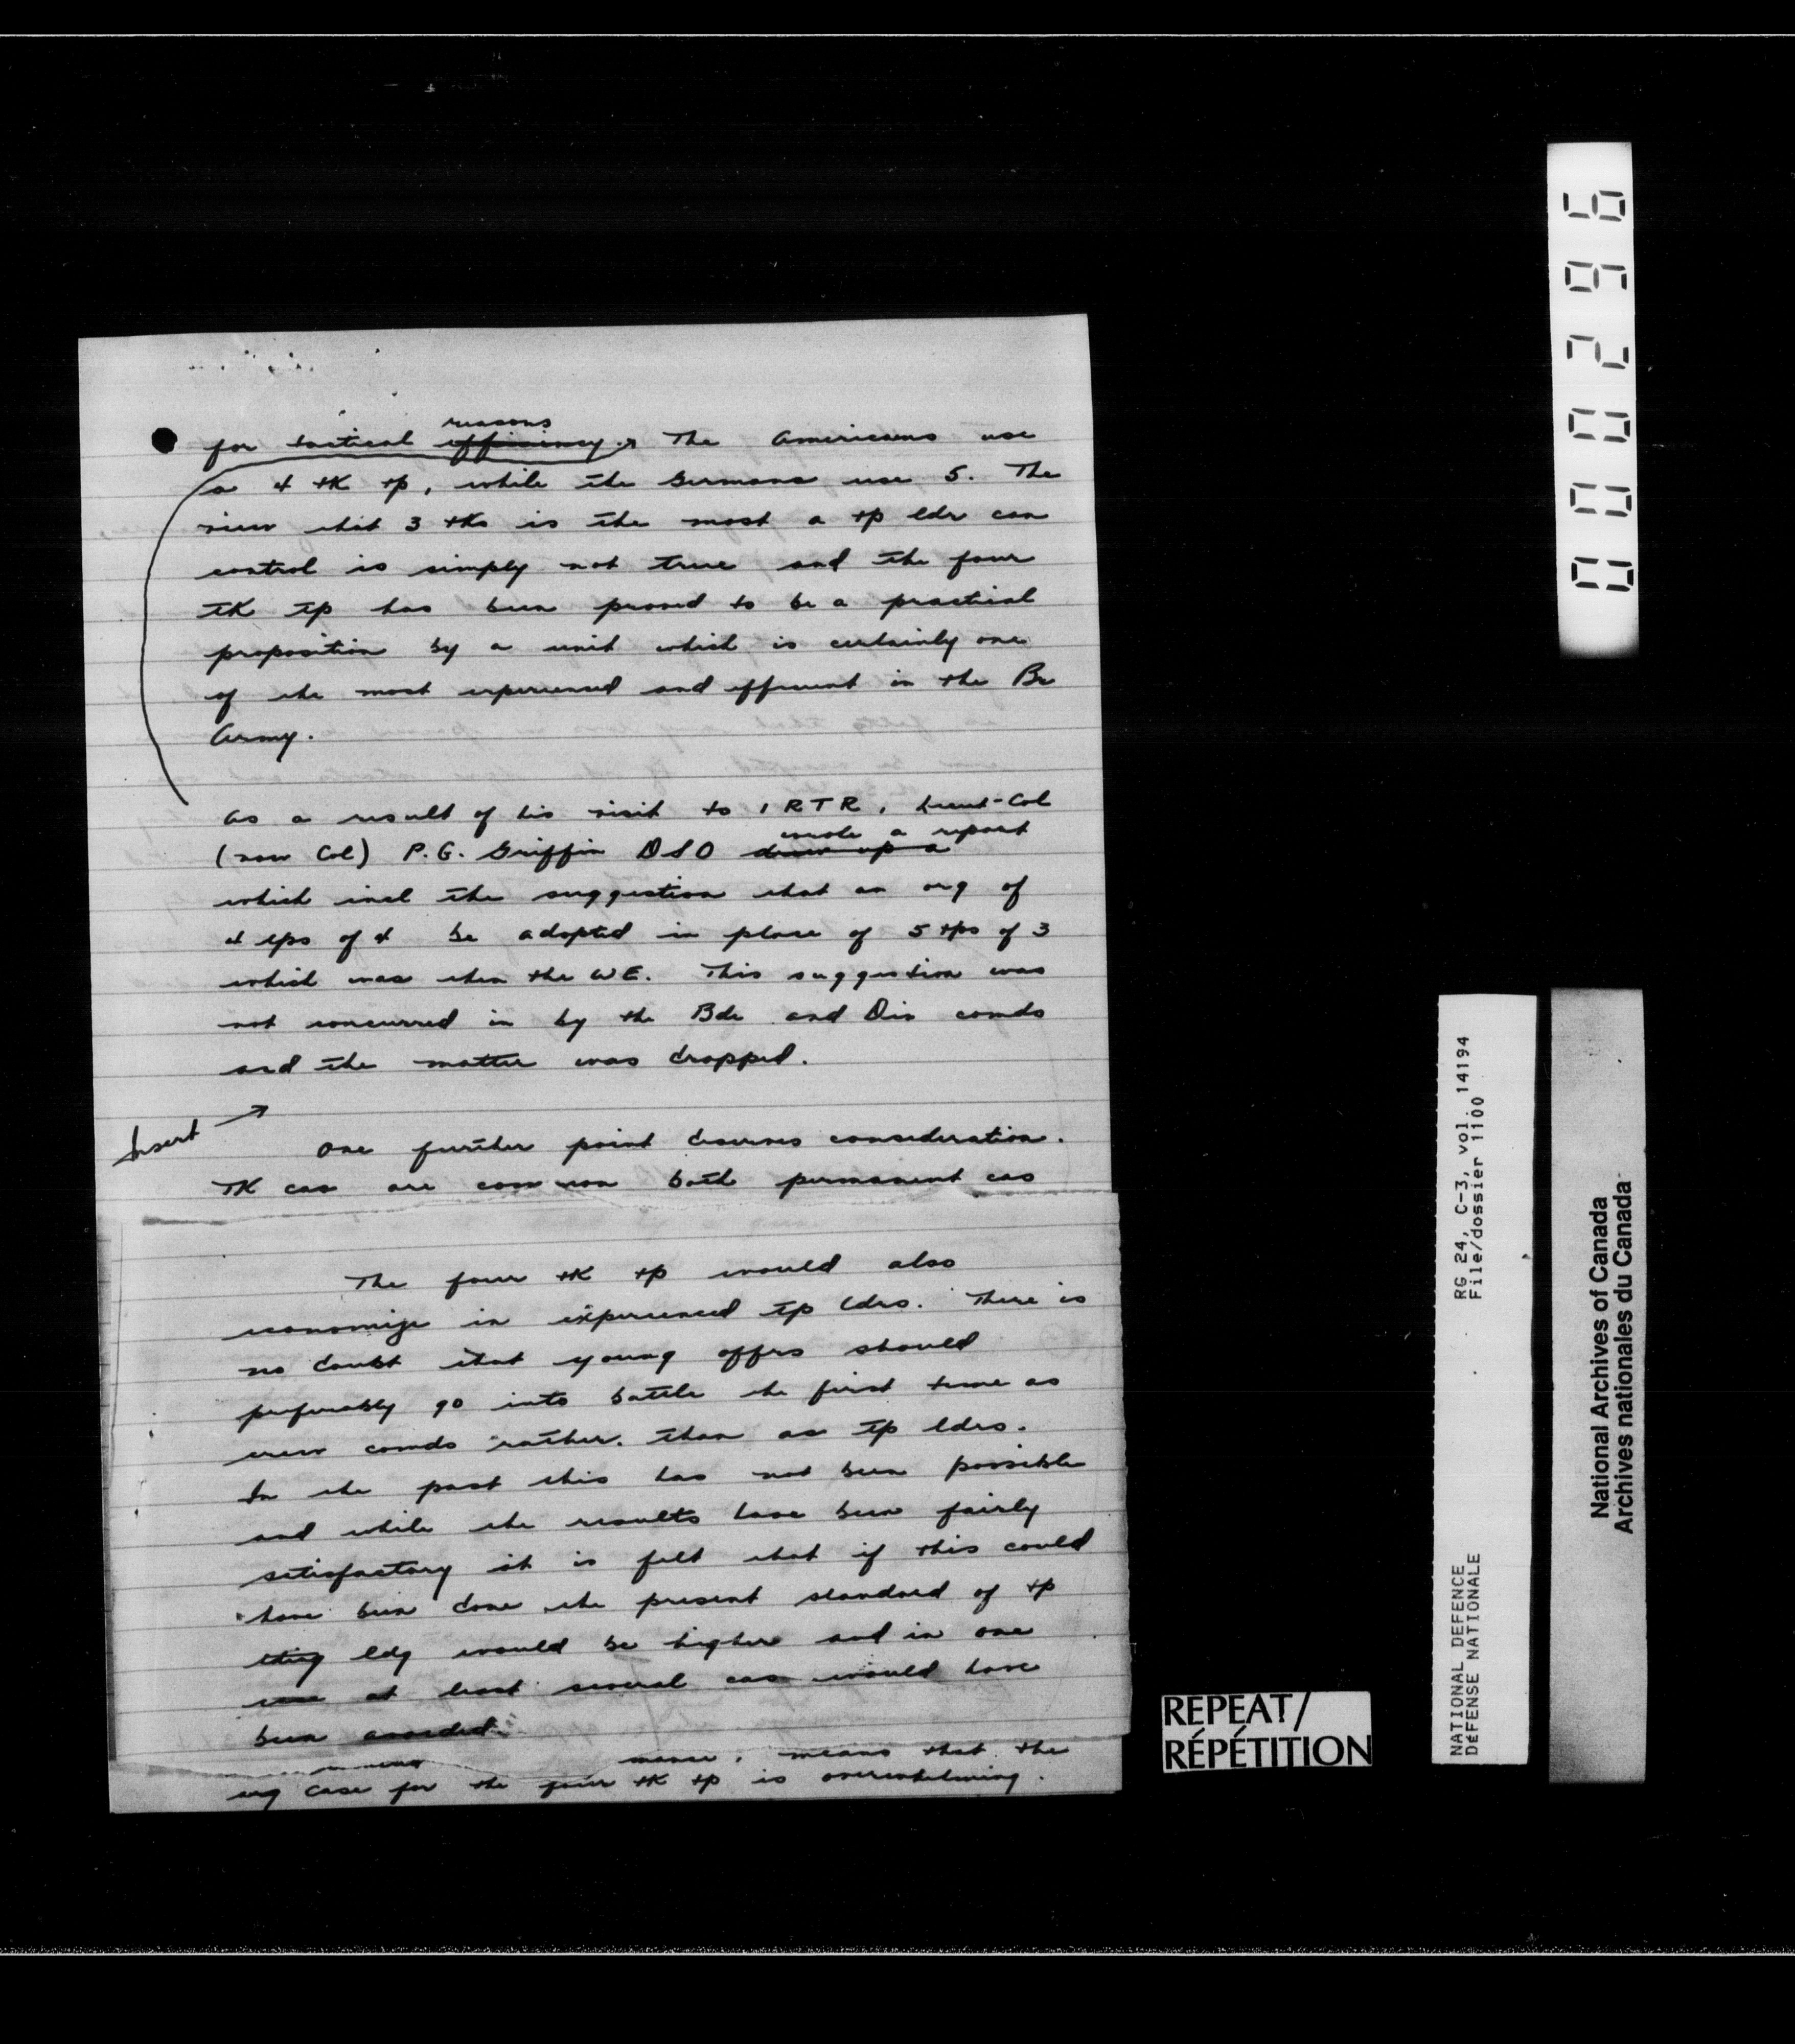 reasons
for tactical efficiency. The Americans use
a 4 tk tp, while the Germans use 5. The
view that 3 tks is the most a tp ldr can
control is simply not true and the four
tk tp has been proved to be a practical
proposition by a unit which is certainly one
of the most experienced and efficient in the Br
Army.
As a result of his visit to 1 RTR, Lieut-Col
wrote a report
(now Col) P.G. Griffin DSO drew up a
which incl the suggestion that an org of
4 tps of 4 be adopted in place of 5 tps of 3
which was then the WE. This suggestion was
not concurred in by the Bde and Div comds
and the matter was dropped.
Insert
One further point deserves consideration.
Tk cas are common both permanent cas
The four tk tp would also
economize in experienced tp ldrs. There is
no doubt that young offrs should
preferably go into battle the first time as
crew comds rather than as tp ldrs.
In the past this has not been possible
and while the results have been fairly
satisfactory it is felt that if this could
have been done the present standard of tp
ldg would be higher and in one
case at least several cas would have
been avoided.
means that the
case for the four tk tp is overwhelming.
REPEAT/
RÉPÉTITION
0000296
RG 24, C-3, vol. 14194
File/dossier 1100
NATIONAL DEFENCE
DÉFENSE NATIONALE
National Archives of Canada
Archives nationales du Canada